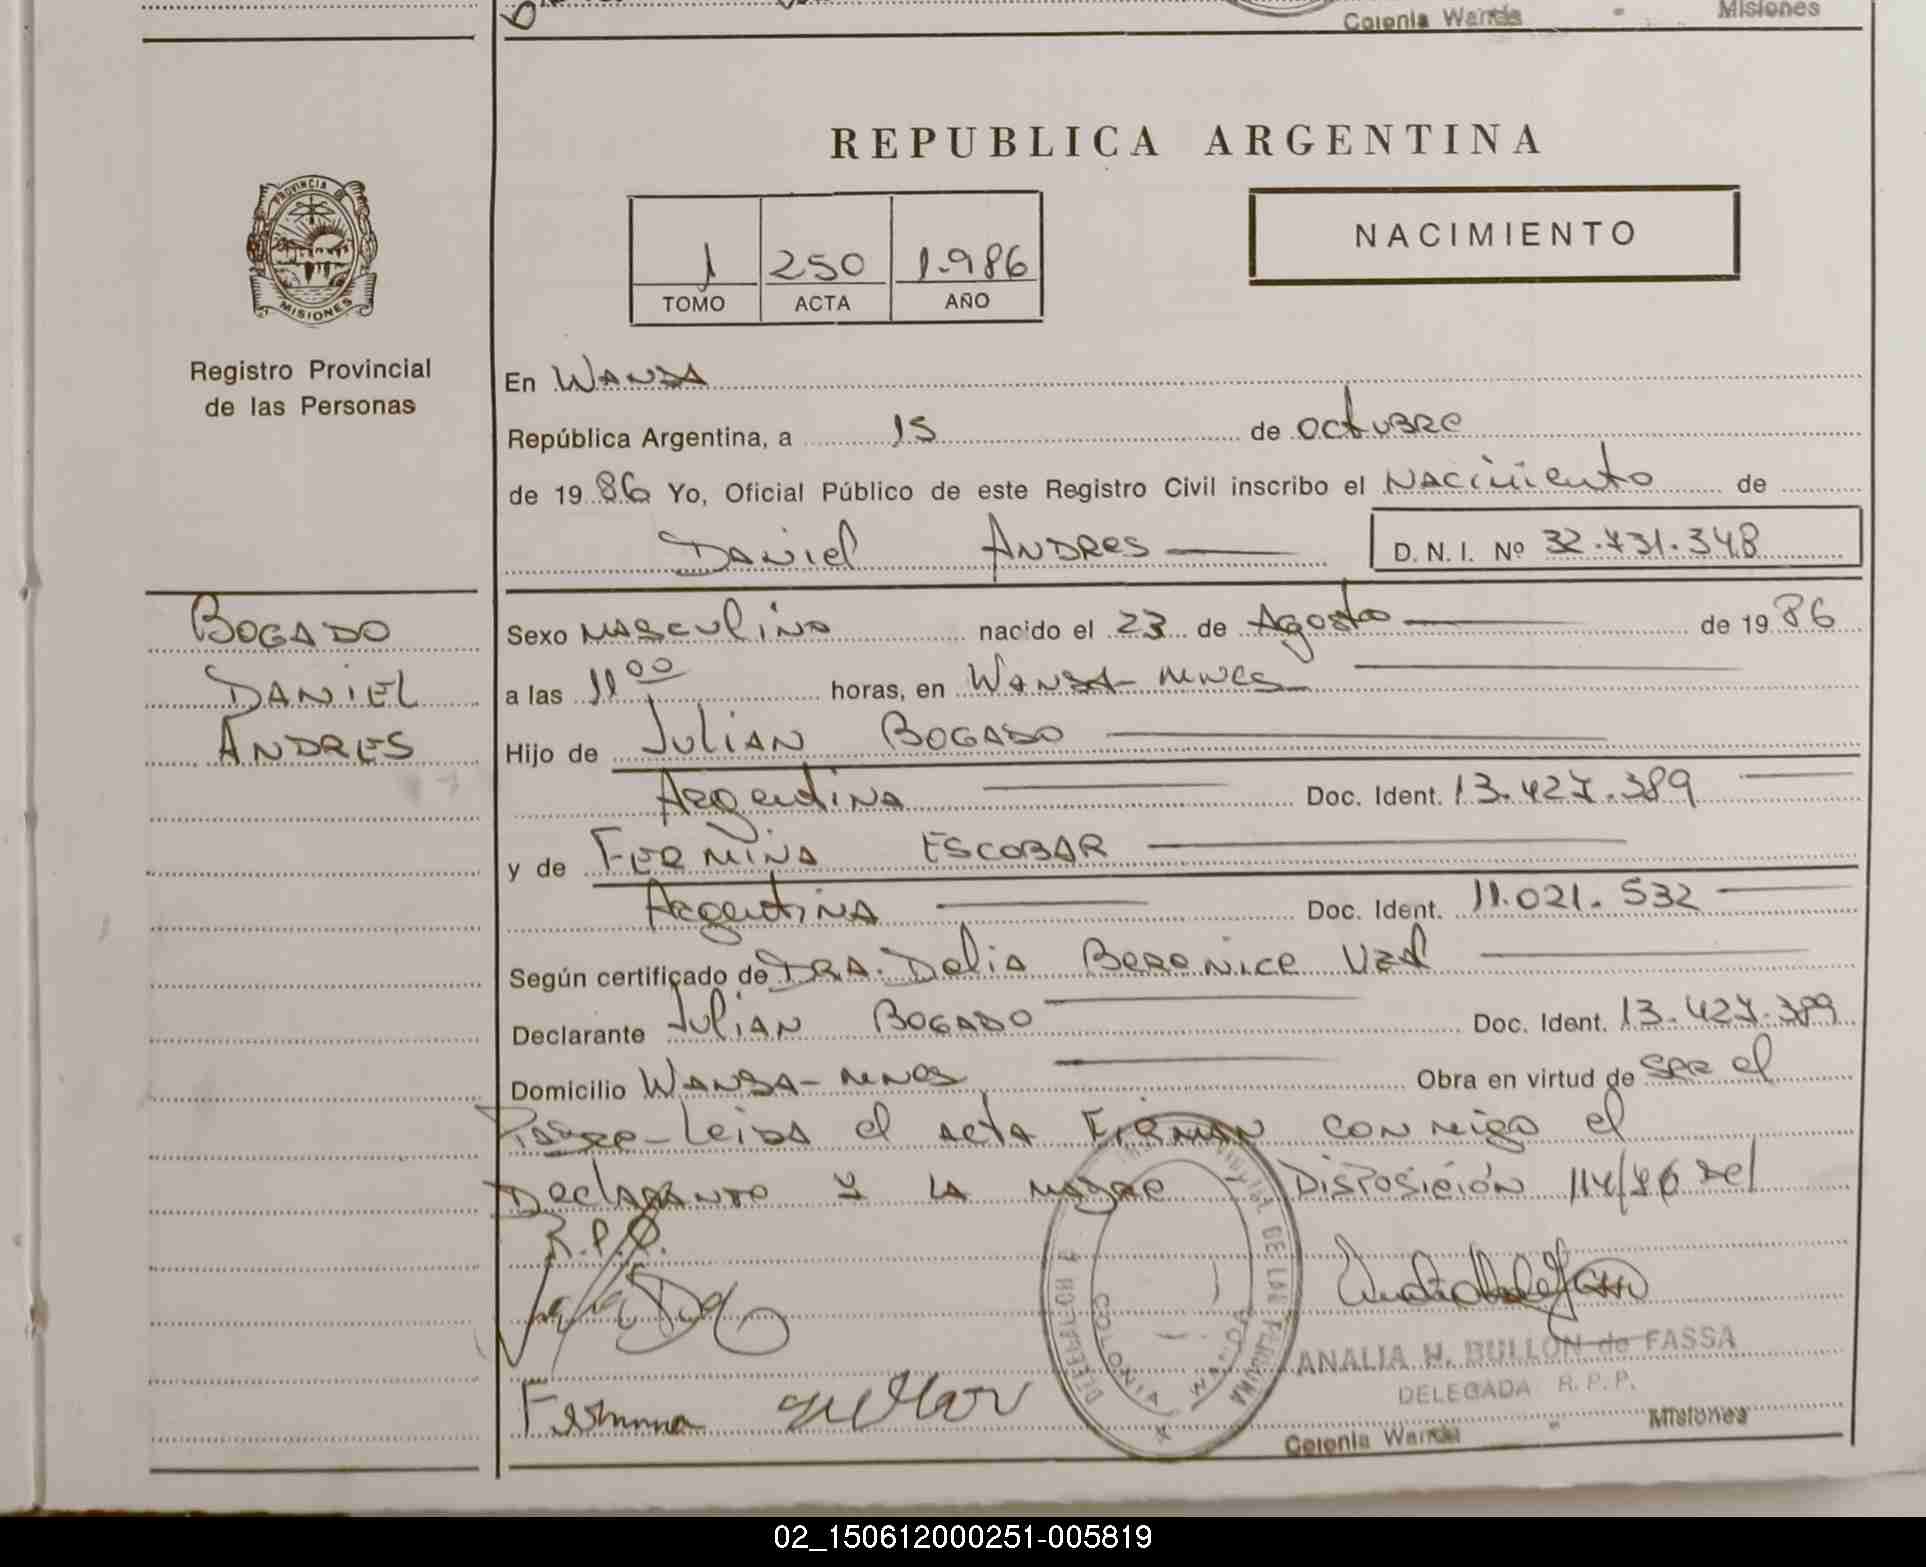 Colonia Wanda - Misiones
REPUBLICA ARGENTINA
PROVINCIA DE
MISIONES
Registro Provincial
de las Personas
1 250 1.986
TOMO ACTA AÑO
NACIMIENTO
En Wanda
República Argentina, a 15 de octubre
de 1986 Yo, Oficial Público de este Registro Civil inscribo el Nacimiento de
Daniel Andres D. N. I. Nº 32.731.348
BOGADO
DANIEL
ANDRES
Sexo masculino nacido el 23 de Agosto de 1986
a las 11 00 horas, en Wanda - Mnes
Hijo de Julian BOGADO
Argentina Doc. Ident. 13.427.389
y de Fermina ESCOBAR
Argentina Doc. Ident. 11.021.532
Según certificado de Dra. Delia Berenice Uzal
Declarante Julian BOGADO Doc. Ident. 13.427.389
Domicilio Wanda - Mnes Obra en virtud de ser el
Padre - Leida el acta Firman conmigo el
Declarante y la madre Disposición 114/86 del
R.P.P.
Fermina
COLONIA WANDA
ANALIA H. BULLON de FASSA
DELEGADA R. P. P.
Colonia Wanda - Misiones
02_150612000251-005819